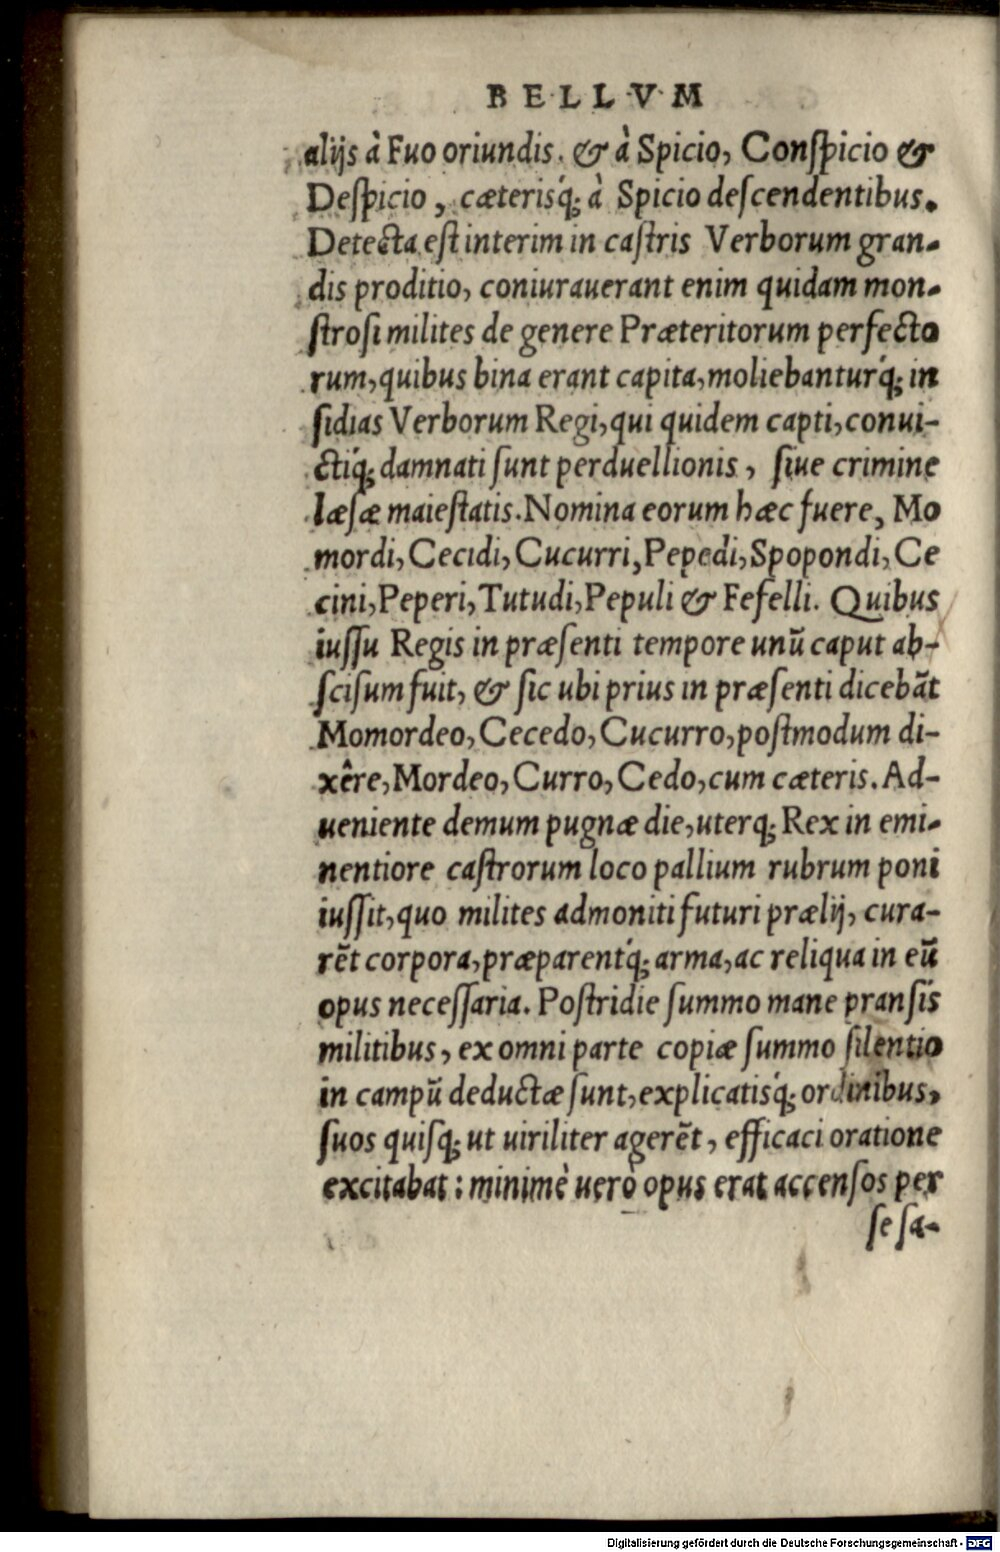 BELLVM
alijs à Fuo oriundis. & à Spicio, Conſpicio &
Deſpicio, cæterisq́; à Spicio deſcendentibus.
Detecta eſt interim in caſtris Verborum gran-
dis proditio, coniurauerant enim quidam mon-
ſtroſi milites de genere Præteritorum perfecto
rum, quibus bina erant capita, moliebanturq́; in
ſidias Verborum Regi, qui quidem capti, conui-
ctiq́; damnati ſunt perduellionis, ſiue crimine
læſæ maieſtatis. Nomina eorum hæc fuere, Mo
mordi, Cecidi, Cucurri, Pepedi, Spopondi, Ce
cini, Peperi, Tutudi, Pepuli & Fefelli. Quibus
iuſſu Regis in præſenti tempore unũ caput ab-
ſciſum fuit, & ſic ubi prius in præſenti dicebãt
Momordeo, Cecedo, Cucurro, poſtmodum di-
xêre, Mordeo, Curro, Cedo, cum cæteris. Ad-
ueniente demum pugnæ die, uterq; Rex in emi-
nentiore caſtrorum loco pallium rubrum poni
iuſſit, quo milites admoniti futuri prælij, cura-
rẽt corpora, præparentq́; arma, ac reliqua in eũ
opus neceſſaria. Poſtridie ſummo mane pranſis
militibus, ex omni parte copiæ ſummo ſilentio
in campũ deductæ ſunt, explicatisq́; ordinibus,
ſuos quiſq; ut uiriliter agerẽt, efficaci oratione
excitabat: minimè uerò opus erat accenſos per
ſe ſa-
Digitalisierung gefördert durch die Deutsche Forschungsgemeinschaft - DFG